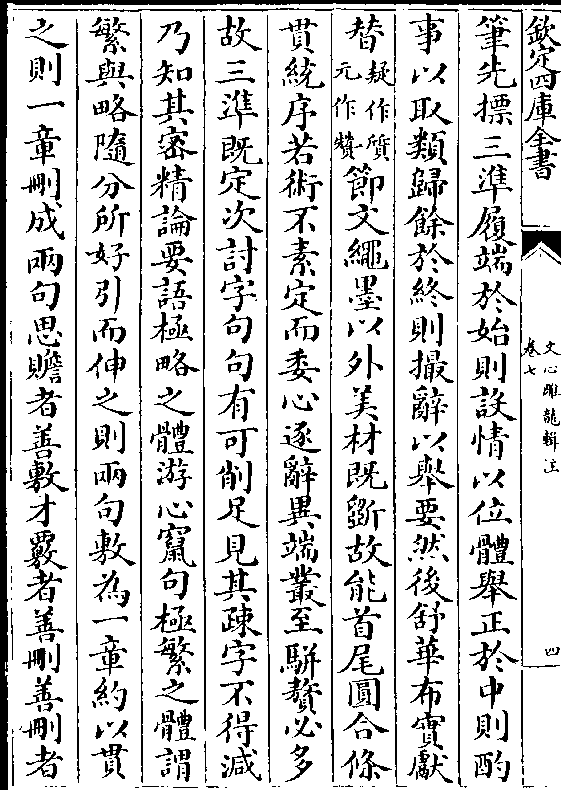 欽定四庫全書
文心雕龍輯注
卷七
四
筆先摽三準履端於始則設情以位體舉正於中則酌
事以取類歸餘於終則撮辭以舉要然後舒華布實獻
替疑作質元作贊節文繩墨以外美材既斵故能首尾圓合條
貫統序若術不素定而委心逐辭異端叢至駢贅必多
故三準既定次討字句句有可削足見其疎字不得減
乃知其密精論要語極略之體游心竄句極繁之體謂
繁與略隨分所好引而伸之則兩句敷為一章約以貫
之則一章刪成兩句思贍者善敷才覈者善刪善刪者